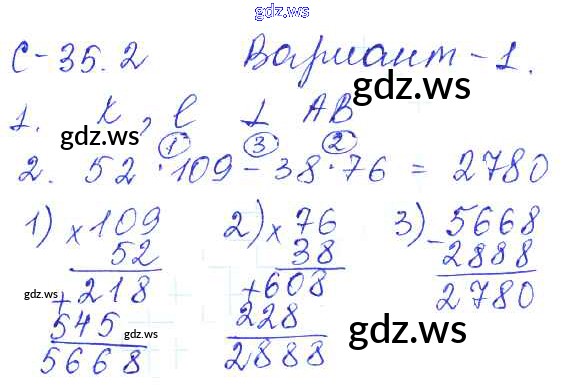 gdz.ws
С-35.2 Вариант-1.
gdz.ws
1. К, С ⊥ АВ
gdz.ws
① ③ ②
2. 52·109-38·76=2780
1) ×109 2) ×76 3) -5668
52 38 2888
+218 +608 2780
gdz.ws
545 228
gdz.ws gdz.ws
5668 2888